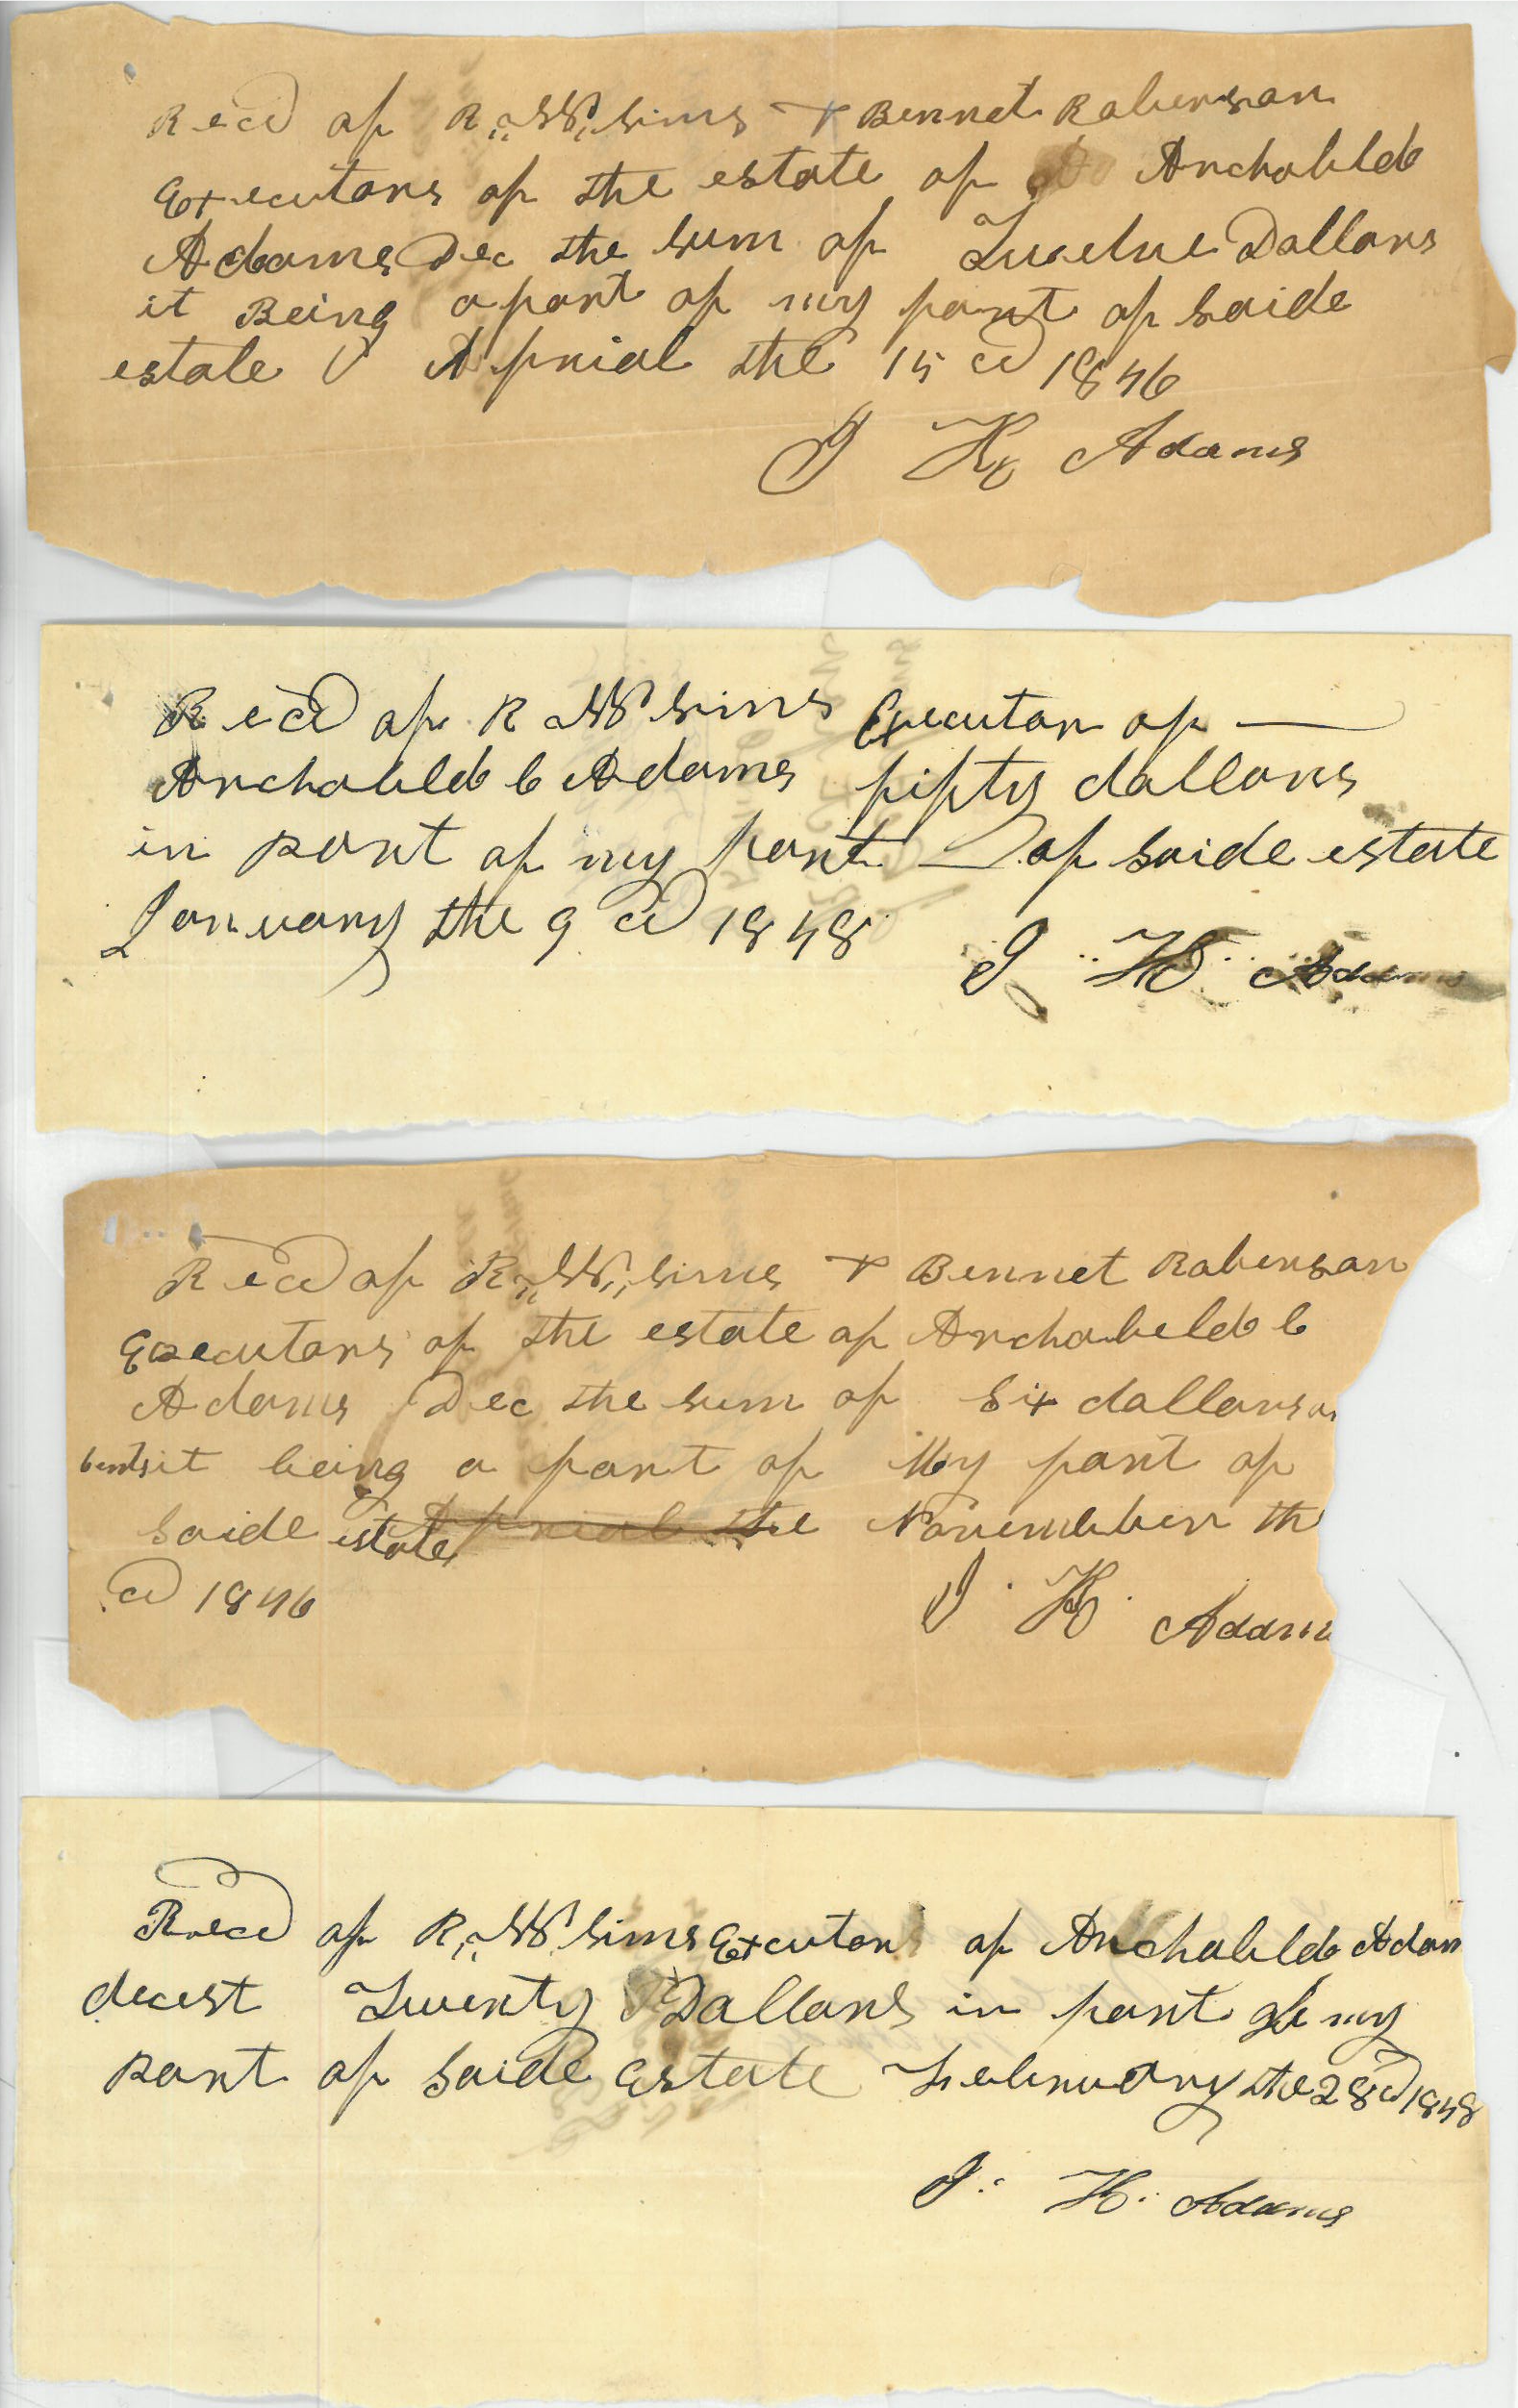 Recd of R, W, Sims & Bennet Roberson
Executors of the estate of Archabeld
Adams Dec the sum of Twelve Dollars
it Being a part of my part of saide
estate Aprial the 15 d 1846
J H Adams
Recd of R W Sims Executor of
Archabeld C Adams fifty dollars
in part of my part of saide estate
January the 9 d 1848
J H Adams
Recd of R, W, Sims & Bennet Roberson
Executors of the estate of Archabeld C
Adams Dec the sum of Six dollars
it being a part of My part of
saide estate Aprial the November th
d 1846
J. H. Adams
Recd of R, W Sims Executor of Archabeld Adam
decest Twenty Dollars in part of my
part of saide Estate February the 28 d 1848
J. H. Adams